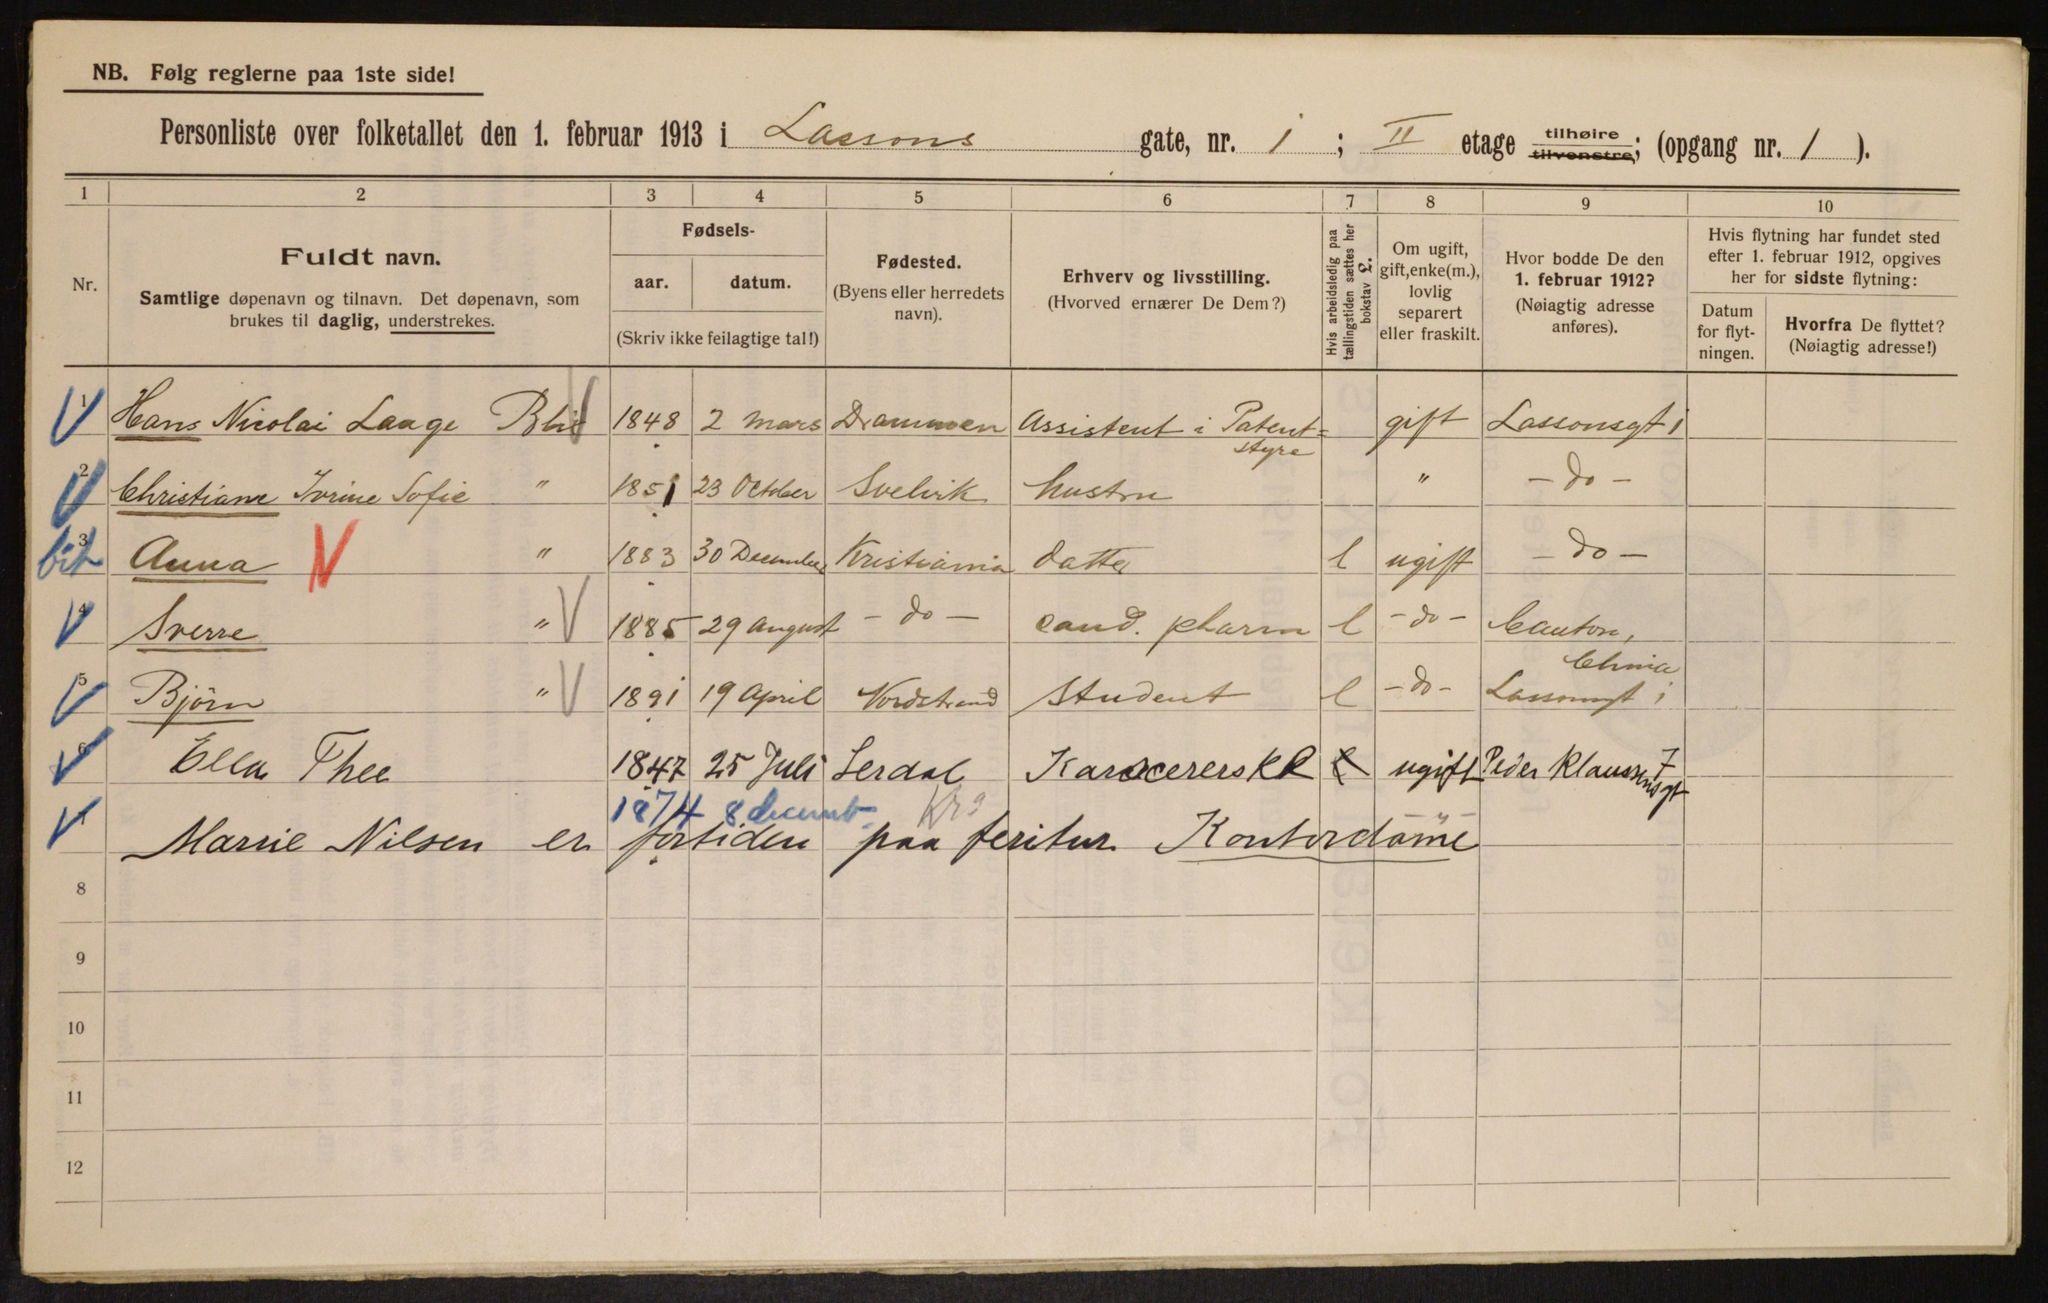 NB. Følg reglerne paa 1ste side!
Personliste over folketallet den 1. februar 1913 i Lassons gate, nr. 1 ; II etage tilhøire tilvenstre; (opgang nr. 1 ).
1 2 3 4 5 6 7 8 9 10
Nr.
Fuldt navn.
Samtlige døpenavn og tilnavn. Det døpenavn, som
brukes til daglig, understrekes.
Fødsels-
aar. datum.
(Skriv ikke feilagtige tal!)
Fødested.
(Byens eller herredets
navn).
Erhverv og livsstilling.
(Hvorved ernærer De Dem?)
Hvis arbeidsledig paa
tællingstiden sættes her
bokstav L.
Om ugift,
gift, enke(m.),
lovlig
separert
eller fraskilt.
Hvor bodde De den
1. februar 1912?
(Nøiagtig adresse
anføres).
Hvis flytning har fundet sted
efter 1. februar 1912, opgives
her for sidste flytning:
Datum
for flyt-
ningen.
Hvorfra De flyttet?
(Nøiagtig adresse!)
1 Hans Nicolai Laage 1848 2 mars Drammen Assistent i Patent= gift Lassonsgt 1
styre
2 Christiane Sofie " 1851 23 October Svelvik hustru " - do -
3 Anna " 1883 30 December Kristiania datter l ugift - do -
4 Sverre " 1885 29 August - do - cand. pharm l - do - Canton,
China
5 Björn " 1891 19 April Nordstrand Student l - do - Lassonsgt 1
6 Ella Thee 1847 25 Juli Lerdal ugift Peder Klaussens 7
gt
1874 8 decemb. Kra
Marie Nilsen er fortiden paa Kontordame
8
9
10
11
12